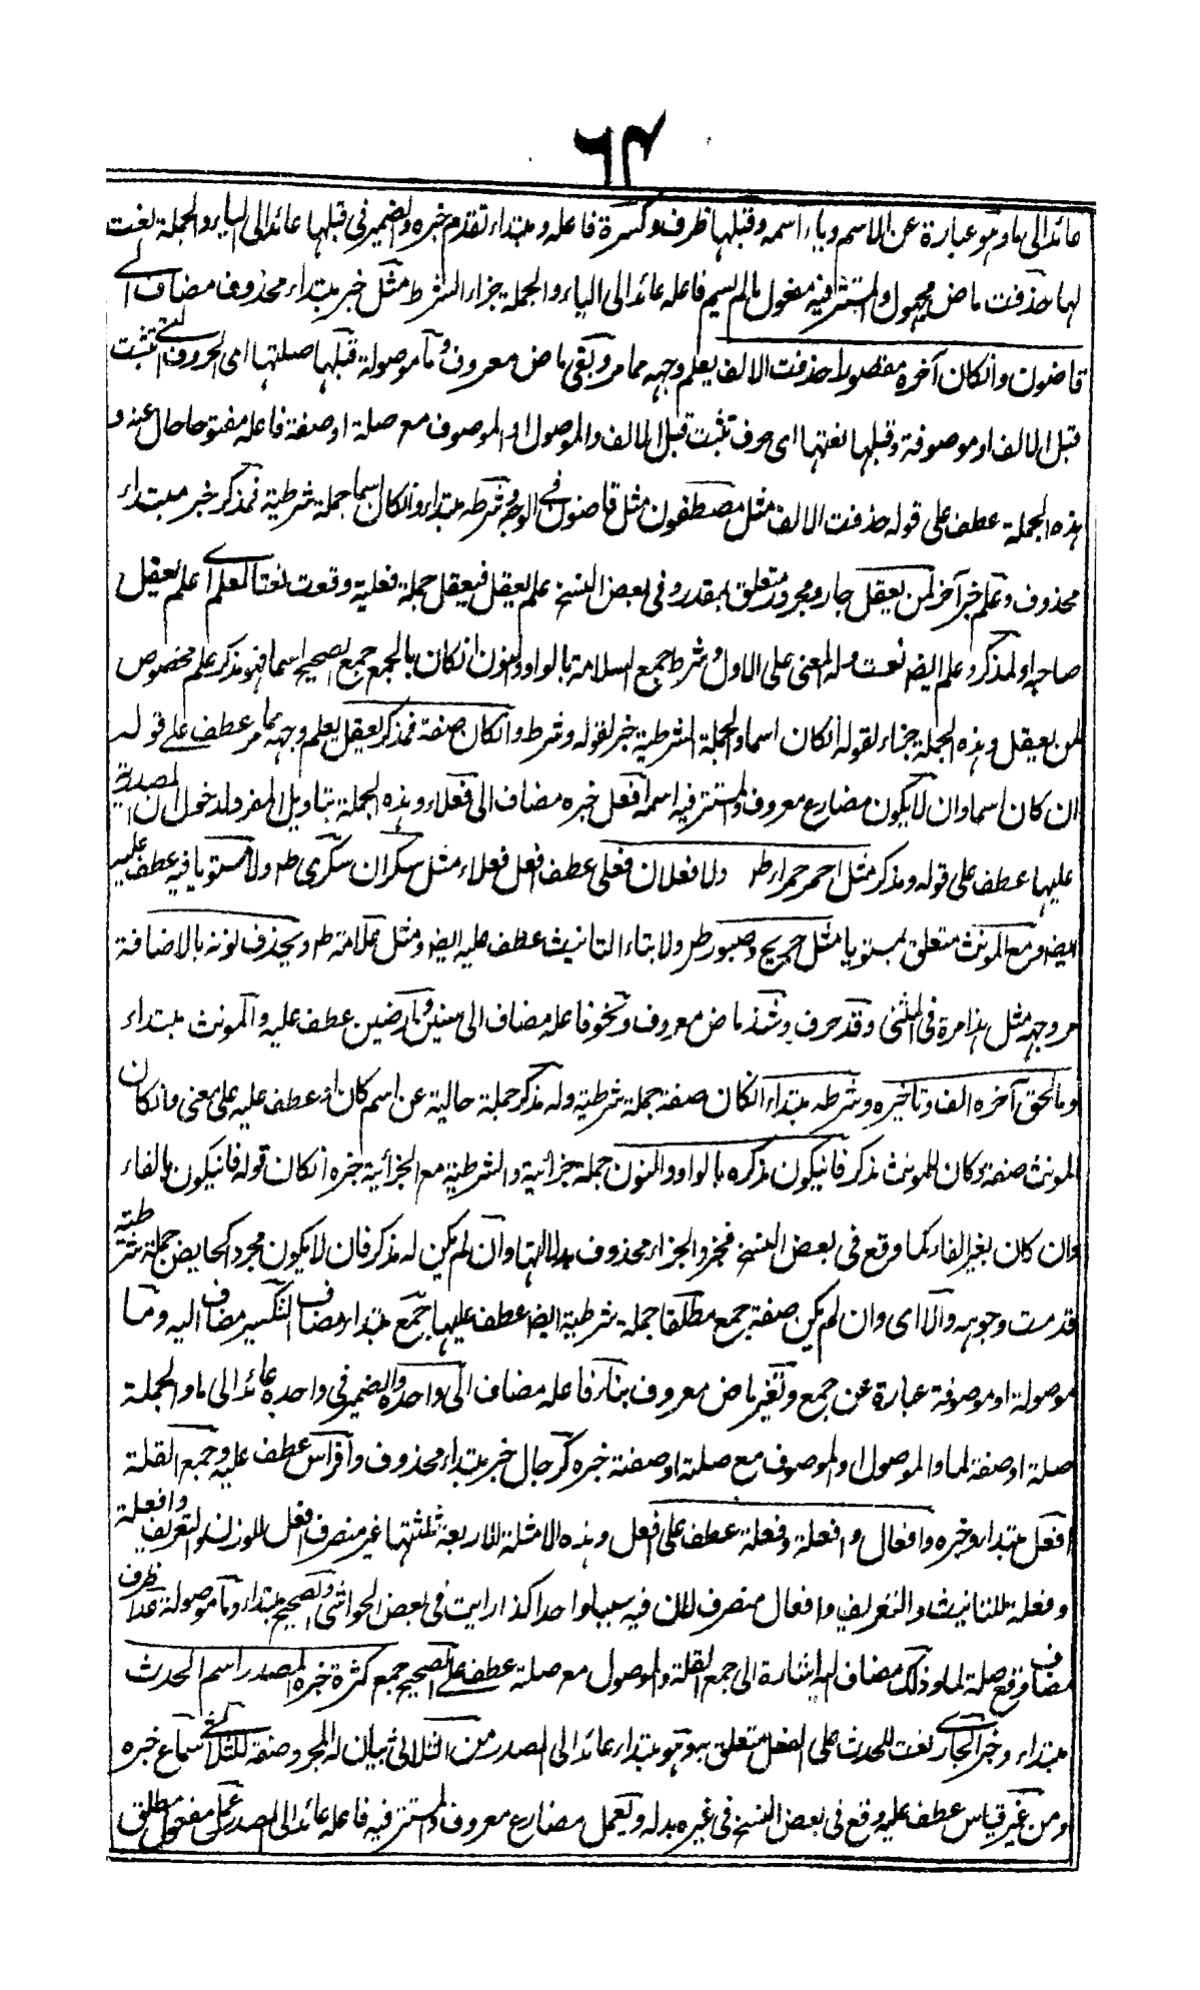 ٦٤
عائد الى ما وهو عبارة عن الاسم وياء اسمه وقبلها ظرف وكسرة فاعله ومبتداء تقدم خبره والضمير في قبلها عائد الى الياء والجملة نعت
لها حذفت ماض مجهول والمستتر فيه مفعول مالم يسم فاعله عائد الى الياء والجملة جزاء الشرط مثل خبر مبتداء محذوف مضاف الى
قاضون وانكان آخره مقصورا حذفت الالف يعلم وجهه مما مر وبقى ماض معروف وما موصولة قبلها صلتها اى الحروف التى تثبت
قبل الالف او موصوفة وقبلها نعتها اى حرف تثبت قبل الالف والموصول او الموصوف مع صلة او صفة فاعله مفتوحا حال عنه و
هذه الجملة عطف على قوله حذفت الالف مثل مصطفون مثل قاضون في الوجوه وشرطه مبتداء وانكان اسما جملة شرطية فمذكر خبر مبتداء
محذوف وعلم خبر آخر لمن يعقل جار ومجرور متعلق بمقدر وفى بعض النسخ علم يعقل فيعقل جملة فعلية وقعت نعتا لعلم اى علم يعقل
صاحبه او لمذكر وعلم ايضا نعت له المعنى على الاول وشرط جمع السلامة بالواو والنون انكان بالجمع جمع الصحيح اسما فهو مذكر علم مخصوص
لمن يعقل وهذه الجملة جزاء لقوله انكان اسما والجملة الشرطية خبر لقوله وشرط وانكان صفة فمذكر يعقل يعلم وجهه مما مر عطف على قوله
ان كان اسما وان لا يكون مضارع معروف والمستتر فيه اسمه افعل خبره مضاف الى فعلاء وهذه الجملة بتاويل المفرد لدخول ان المصدرية
عليها عطف على قوله ومذكر مثل احمر حمراء ط ولا فعلان فعلى عطف افعل فعلاء مثل سكران سكرى ط ولا مستويا فيه عطف عليه
ايضا ومع المونث متعلق بمستويا مثل جريح وصبور ط ولا بتاء التانيث عطف عليه ايضا ومثل علامة ط ويحذف نونه بالاضافة
مر وجهه مثل هذا مرة في المثنى وقد حرف وشذ ماض معروف ونحو فاعله مضاف الى سنين وارضين عطف عليه والمونث مبتداء
وما لحق آخره الف وتا خبره وشرطه مبتداء انكان صفة جملة شرطية وله مذكر جملة حالية عن اسم كان او عطف عليه على معنى وانكان
المونث صفة وكان للمونث مذكر فان يكون مذكره بالواو والنون جملة جزائية والشرطية مع الجزائية خبره انكان قوله فان يكون بالفاء
وان كان بغير الفاء كما وقع في بعض النسخ فخبر والجزاء محذوف بدلالتها وان لم يكن له مذكر فان لا يكون مجرد الحايض جملة شرطية
قد مرت وجوهه والا اى وان لم يكن صفة جمع مطلقا جملة شرطية ايضا عطف عليها جمع مبتداء مضاف التكسير مضاف اليه وما
موصولة او موصوفة عبارة عن جمع وتغير ماض معروف بناء فاعله مضاف الى واحده والضمير في واحده عائد الى ما والجملة
صلة او صفة لما والموصول او الموصوف مع صلة او صفة خبره كرجال خبر مبتداء محذوف وافراس عطف عليه وجمع القلة
افعل مبتداء وخبره وافعال وافعلة وفعلة عطف على افعل وهذه الامثلة الاربعة ثلثتها غير منصرف افعل للوزن والتعريف وافعلة
وفعلة للتانيث والتعريف وافعال منصرف لان فيه سببا واحدا كذا رايت في بعض الحواشى والصحيح مبتداء وما موصولة عدا ظرف
مضاف وقع صلة لما وذلك مضاف اليه اشارة الى جمع القلة والموصول مع صلة عطف على الصحيح جمع كثرة خبره المصدر اسم الحدث
مبتداء وخبر الجارى نعت للحدث على الفعل متعلق به وهو مبتداء عائد الى المصدر من الثلاثى بيان له المجرد صفة للثلاثى سماع خبره
ومن غير قياس عطف عليه وقع في بعض النسخ في غيره بدله ويعمل مضارع معروف والمستتر فيه فاعله عائد الى المصدر عمل مفعول مطلق